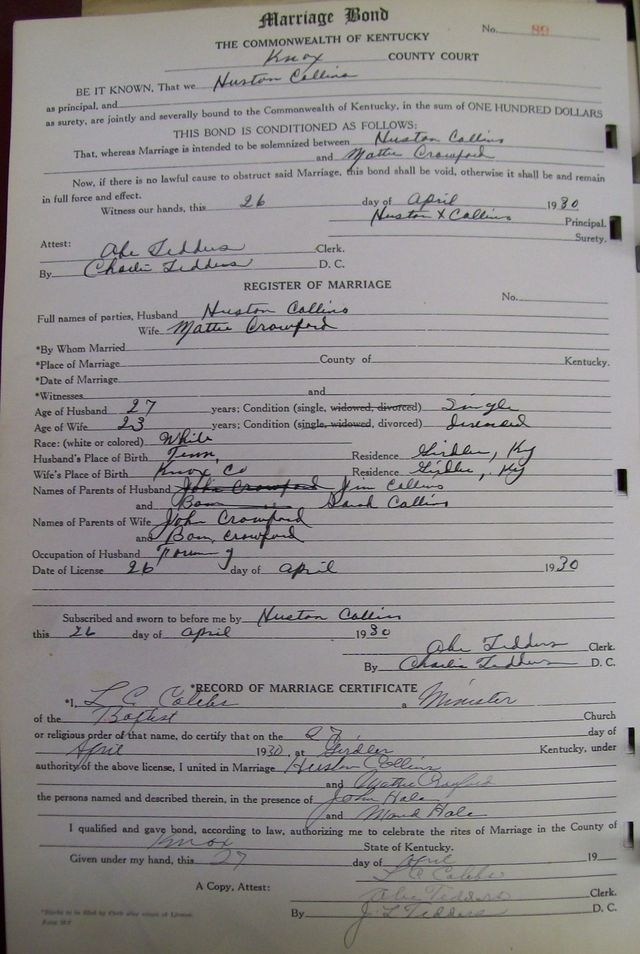 Marriage Bond
No. 89
THE COMMONWEALTH OF KENTUCKY
Knox COUNTY COURT
BE IT KNOWN, That we Huston Collins
as principal, and
as surety, are jointly and severally bound to the Commonwealth of Kentucky, in the sum of ONE HUNDRED DOLLARS
THIS BOND IS CONDITIONED AS FOLLOWS:
That, whereas Marriage is intended to be solemnized between Huston Collins
and Mattie Crawford
Now, if there is no lawful cause to obstruct said Marriage, this bond shall be void, otherwise it shall be and remain
in full force and effect.
Witness our hands, this 26 day of April 1930
Huston X Collins Principal.
Surety.
Attest: Abe Tedders Clerk.
By Charlie Tedders D. C.
REGISTER OF MARRIAGE
No.
Full names of parties, Husband Huston Collins
Wife Mattie Crawford
*By Whom Married
*Place of Marriage County of Kentucky.
*Date of Marriage
*Witnesses and
Age of Husband 27 years; Condition (single, widowed, divorced) Single
Age of Wife 23 years; Condition (single, widowed, divorced)
Race: (white or colored) White
Husband's Place of Birth Tenn, Residence Girdler, Ky
Wife's Place of Birth Knox Co Residence Girdler, Ky
Names of Parents of Husband John Crawford Jim Collins
and Bam Sarah Collins
Names of Parents of Wife John Crawford
and Bam Crawford
Occupation of Husband
Date of License 26 day of April 1930
Subscribed and sworn to before me by Huston Collins
this 26 day of April 1930
Abe Tedders Clerk.
By Charlie Tedders D. C.
*RECORD OF MARRIAGE CERTIFICATE
*I, L C Calebs a Minister
of the Baptist Church
or religious order of that name, do certify that on the 27 day of
April 1930, at Girdler Kentucky, under
authority of the above license, I united in Marriage Huston Collins
and Mattie Crawford
the persons named and described therein, in the presence of John Hale
and Maud Hale
I qualified and gave bond, according to law, authorizing me to celebrate the rites of Marriage in the County of
Knox State of Kentucky.
Given under my hand, this 27 day of April 19
L C Calebs
A Copy, Attest: Abe Tedders Clerk.
By J. L Tedders D. C.
*Blanks to be filled by Clerk after return of License.